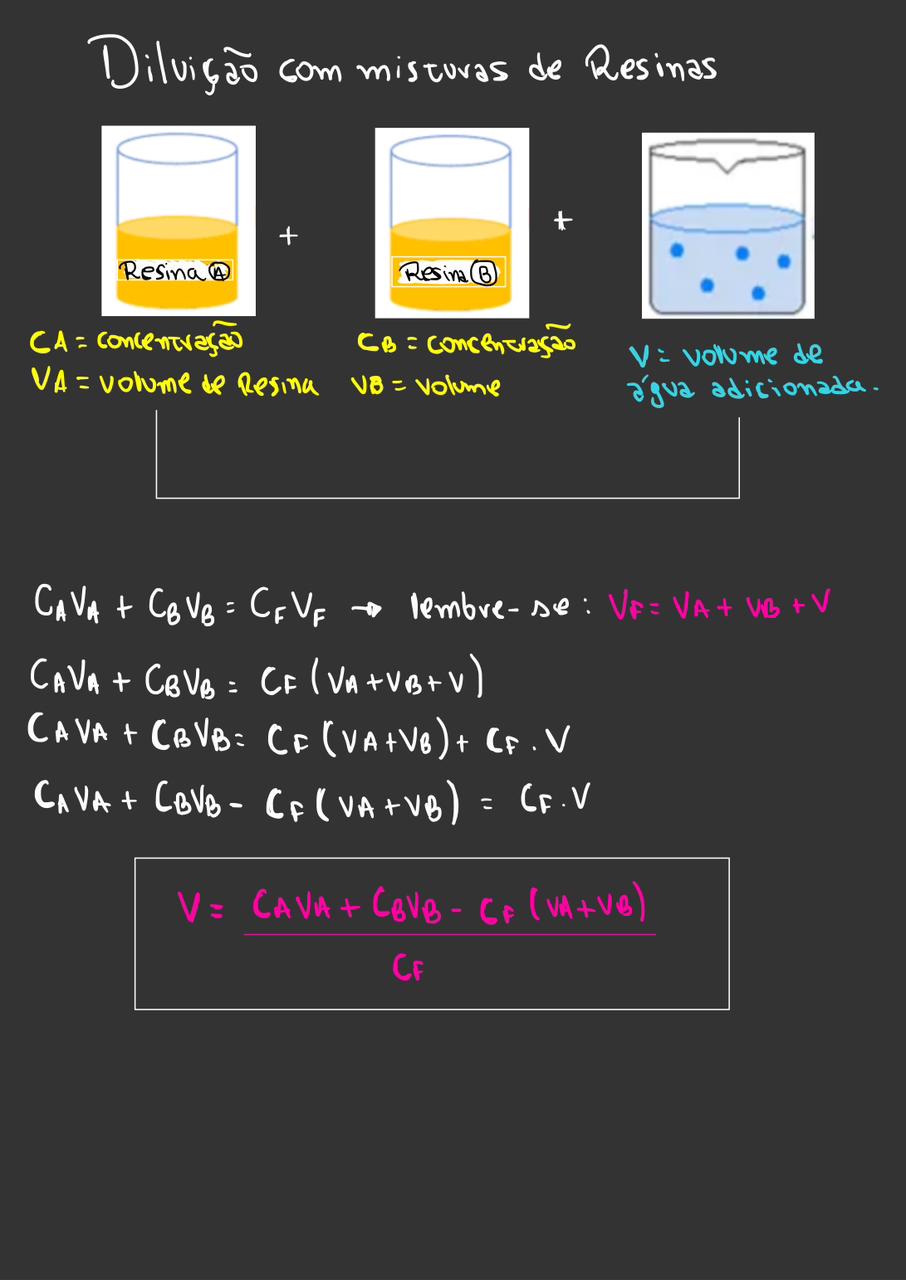 Diluição com misturas de Resinas
Resina A
+
Resina B
+
CA = concentração
VA = volume de Resina
CB = concentração
VB = volume
V = volume de
água adicionada.
CAVA + CBVB = CFVF → lembre-se: VF = VA + VB + V
CAVA + CBVB = CF (VA+VB+V)
CAVA + CBVB = CF (VA+VB) + CF . V
CAVA + CBVB - CF (VA+VB) = CF . V
V = CAVA + CBVB - CF (VA+VB)
CF